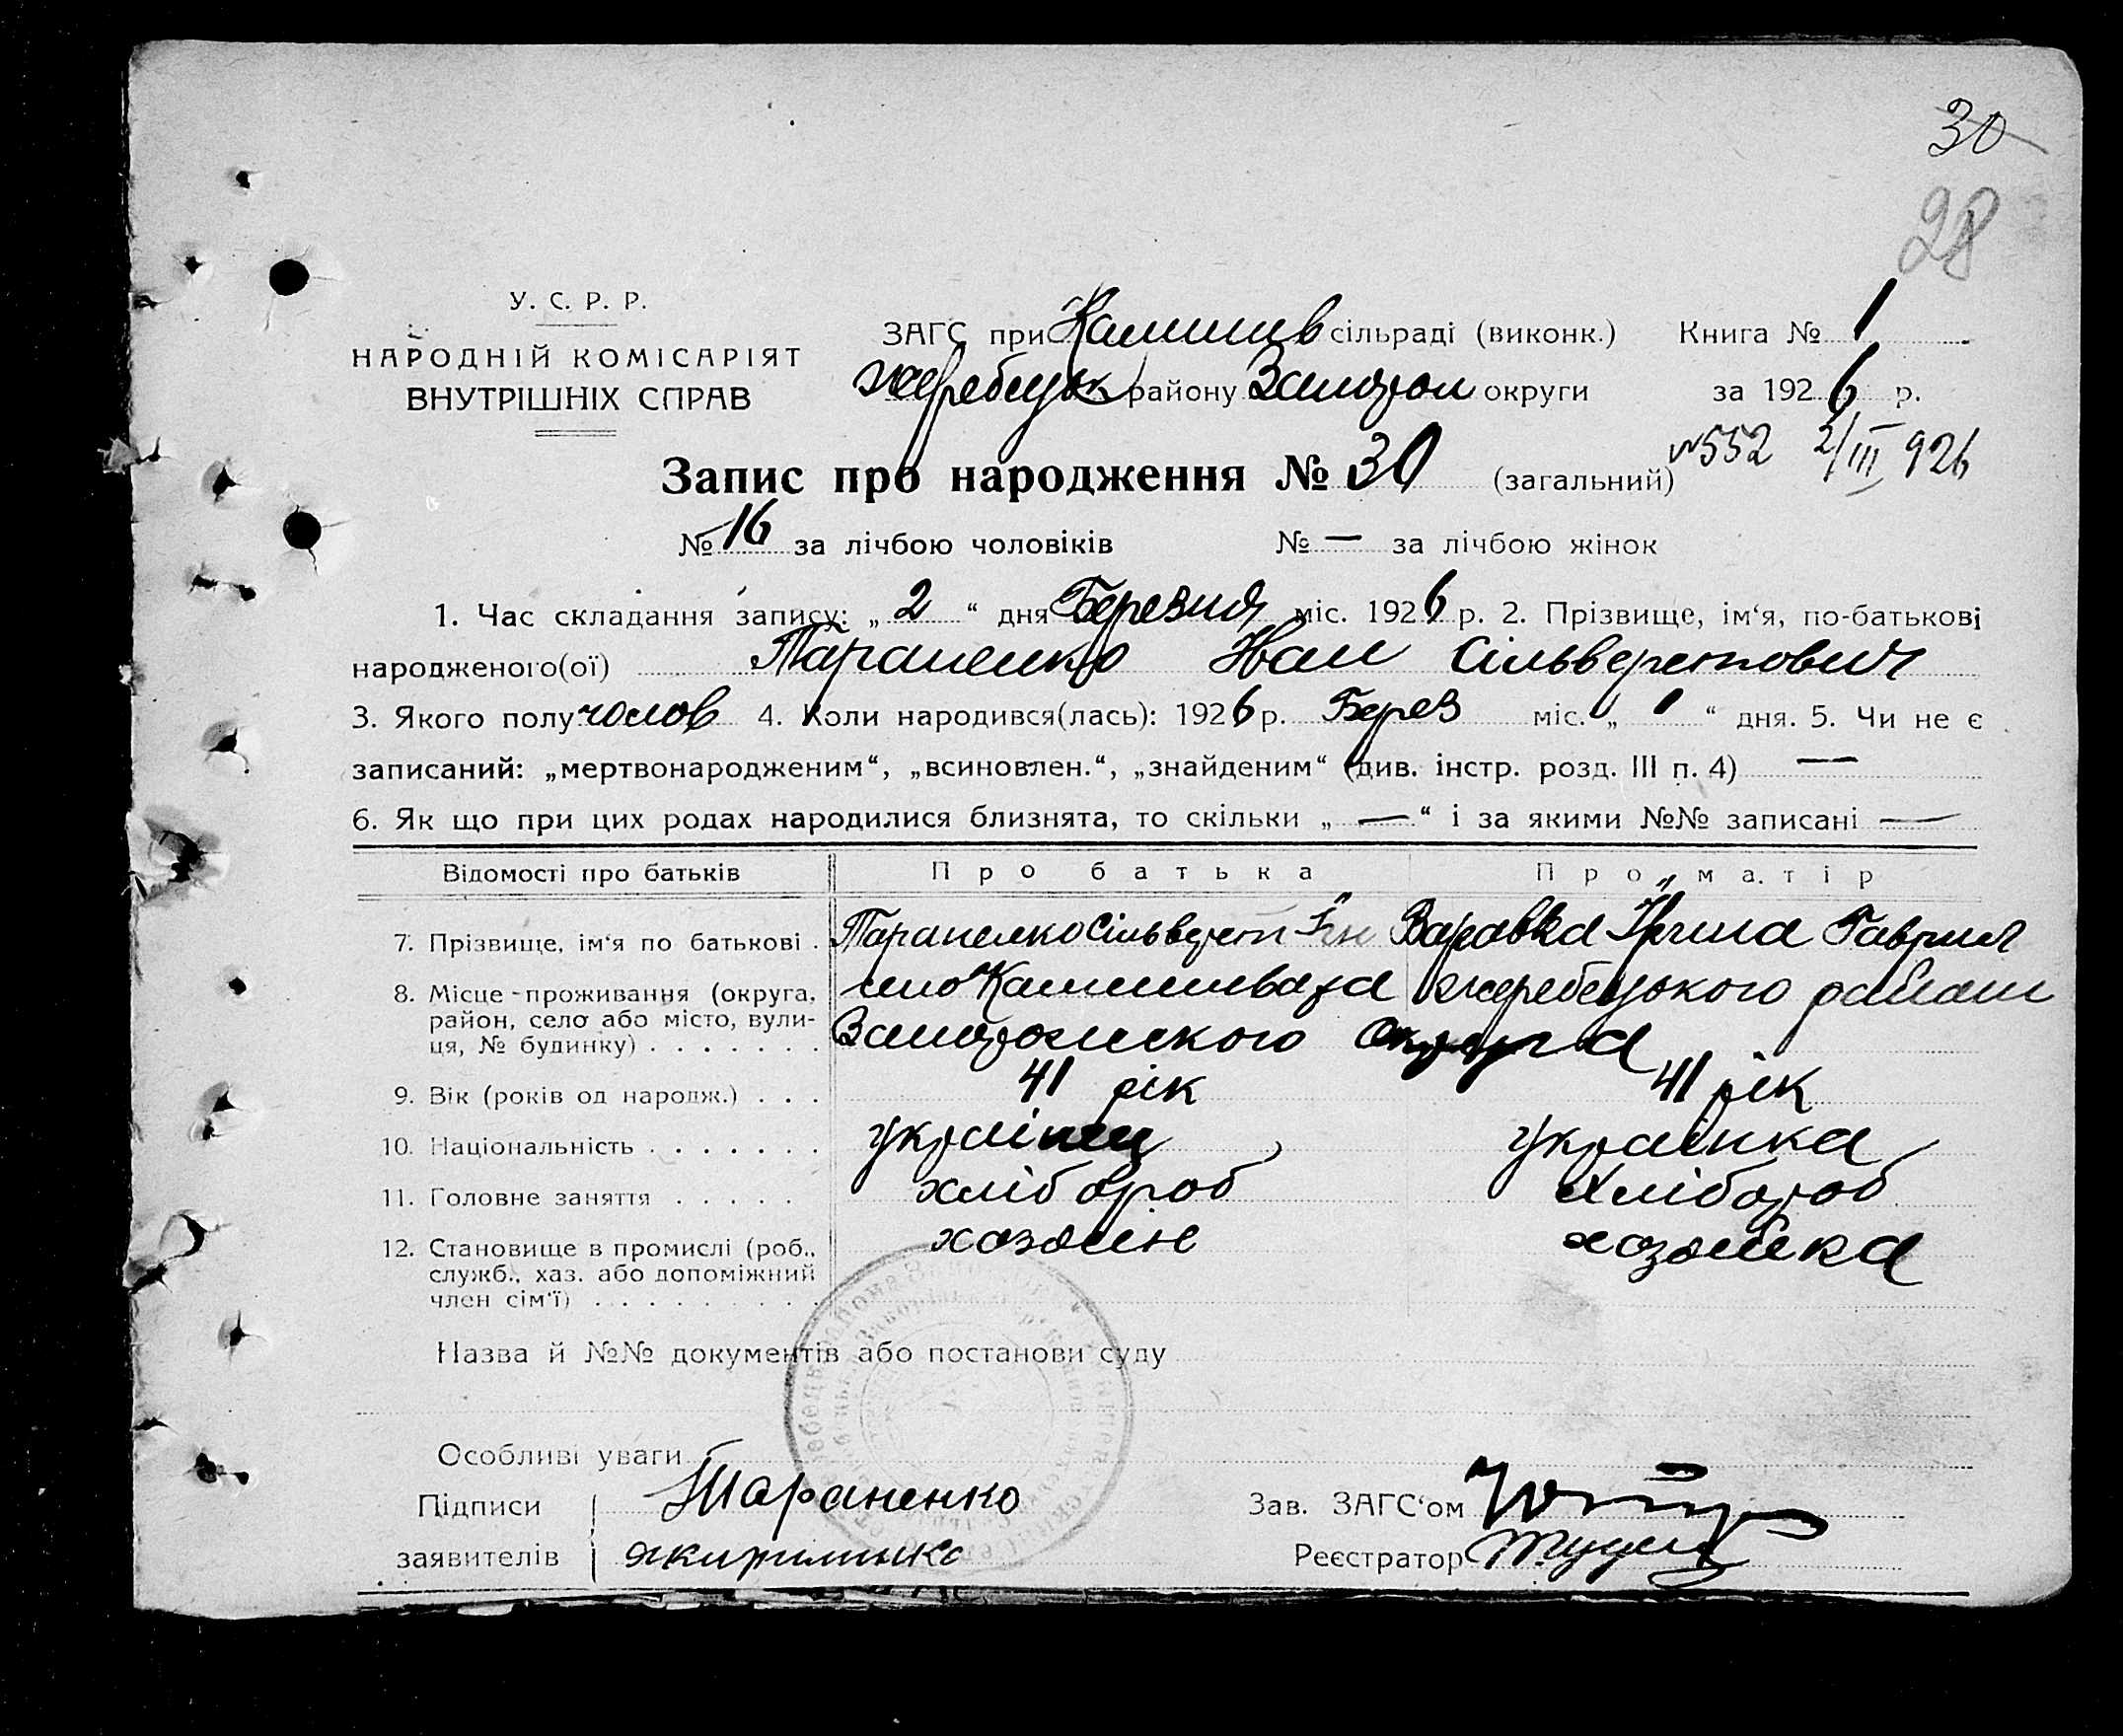 30
28
У. С. Р. Р.
НАРОДНІЙ КОМІСАРІЯТ
ВНУТРІШНІХ СПРАВ
ЗАГС при Камишив сільраді (виконк.) Книга № 1
жеребецьк району Запорож округи за 1926 р.
Запис про народження № 30 (загальний) №552 2/III 926
№ 16 за лічбою чоловіків № — за лічбою жінок
1. Час складання запису: „ 2 “ дня Березня міс. 1926 р. 2. Прізвище, ім‘я, по-батькові
народженого(ої) Тараненко Иван Сільверстович
3. Якого полу чолов 4. Коли народився(лась): 1926 р. Берез міс. „ 1 “ дня. 5. Чи не є
записаний: „мертвонародженим“, „всиновлен.“, „знайденим“ (див. інстр. розд. III п. 4) —
6. Як що при цих родах народилися близнята, то скільки „ — “ і за якими №№ записані —
Відомості про батьків Про батька Про матір
7. Прізвище, ім‘я по батькові . Тараненко Сільверст Варавка Ірина Гаврил
8. Місце-проживання (округа, село Камишиваха жеребецького району
район, село або місто, вули-
ця, № будинку) . . . . . . . Запорожського округа
9. Вік (років од народж.) . . . 41 рік 41 рік
10. Національність . . . . . . . українец українка
11. Головне заняття . . . . . хлібороб хлібороб
12. Становище в промислі (роб., хозяин хозяйка
служб., хаз. або допоміжний
член сім‘ї) . . . . . . . . .
Назва й №№ документів або постанови суду
Особливі уваги
Підписи Тараненко Зав. ЗАГС‘ом
заявителів Реєстратор